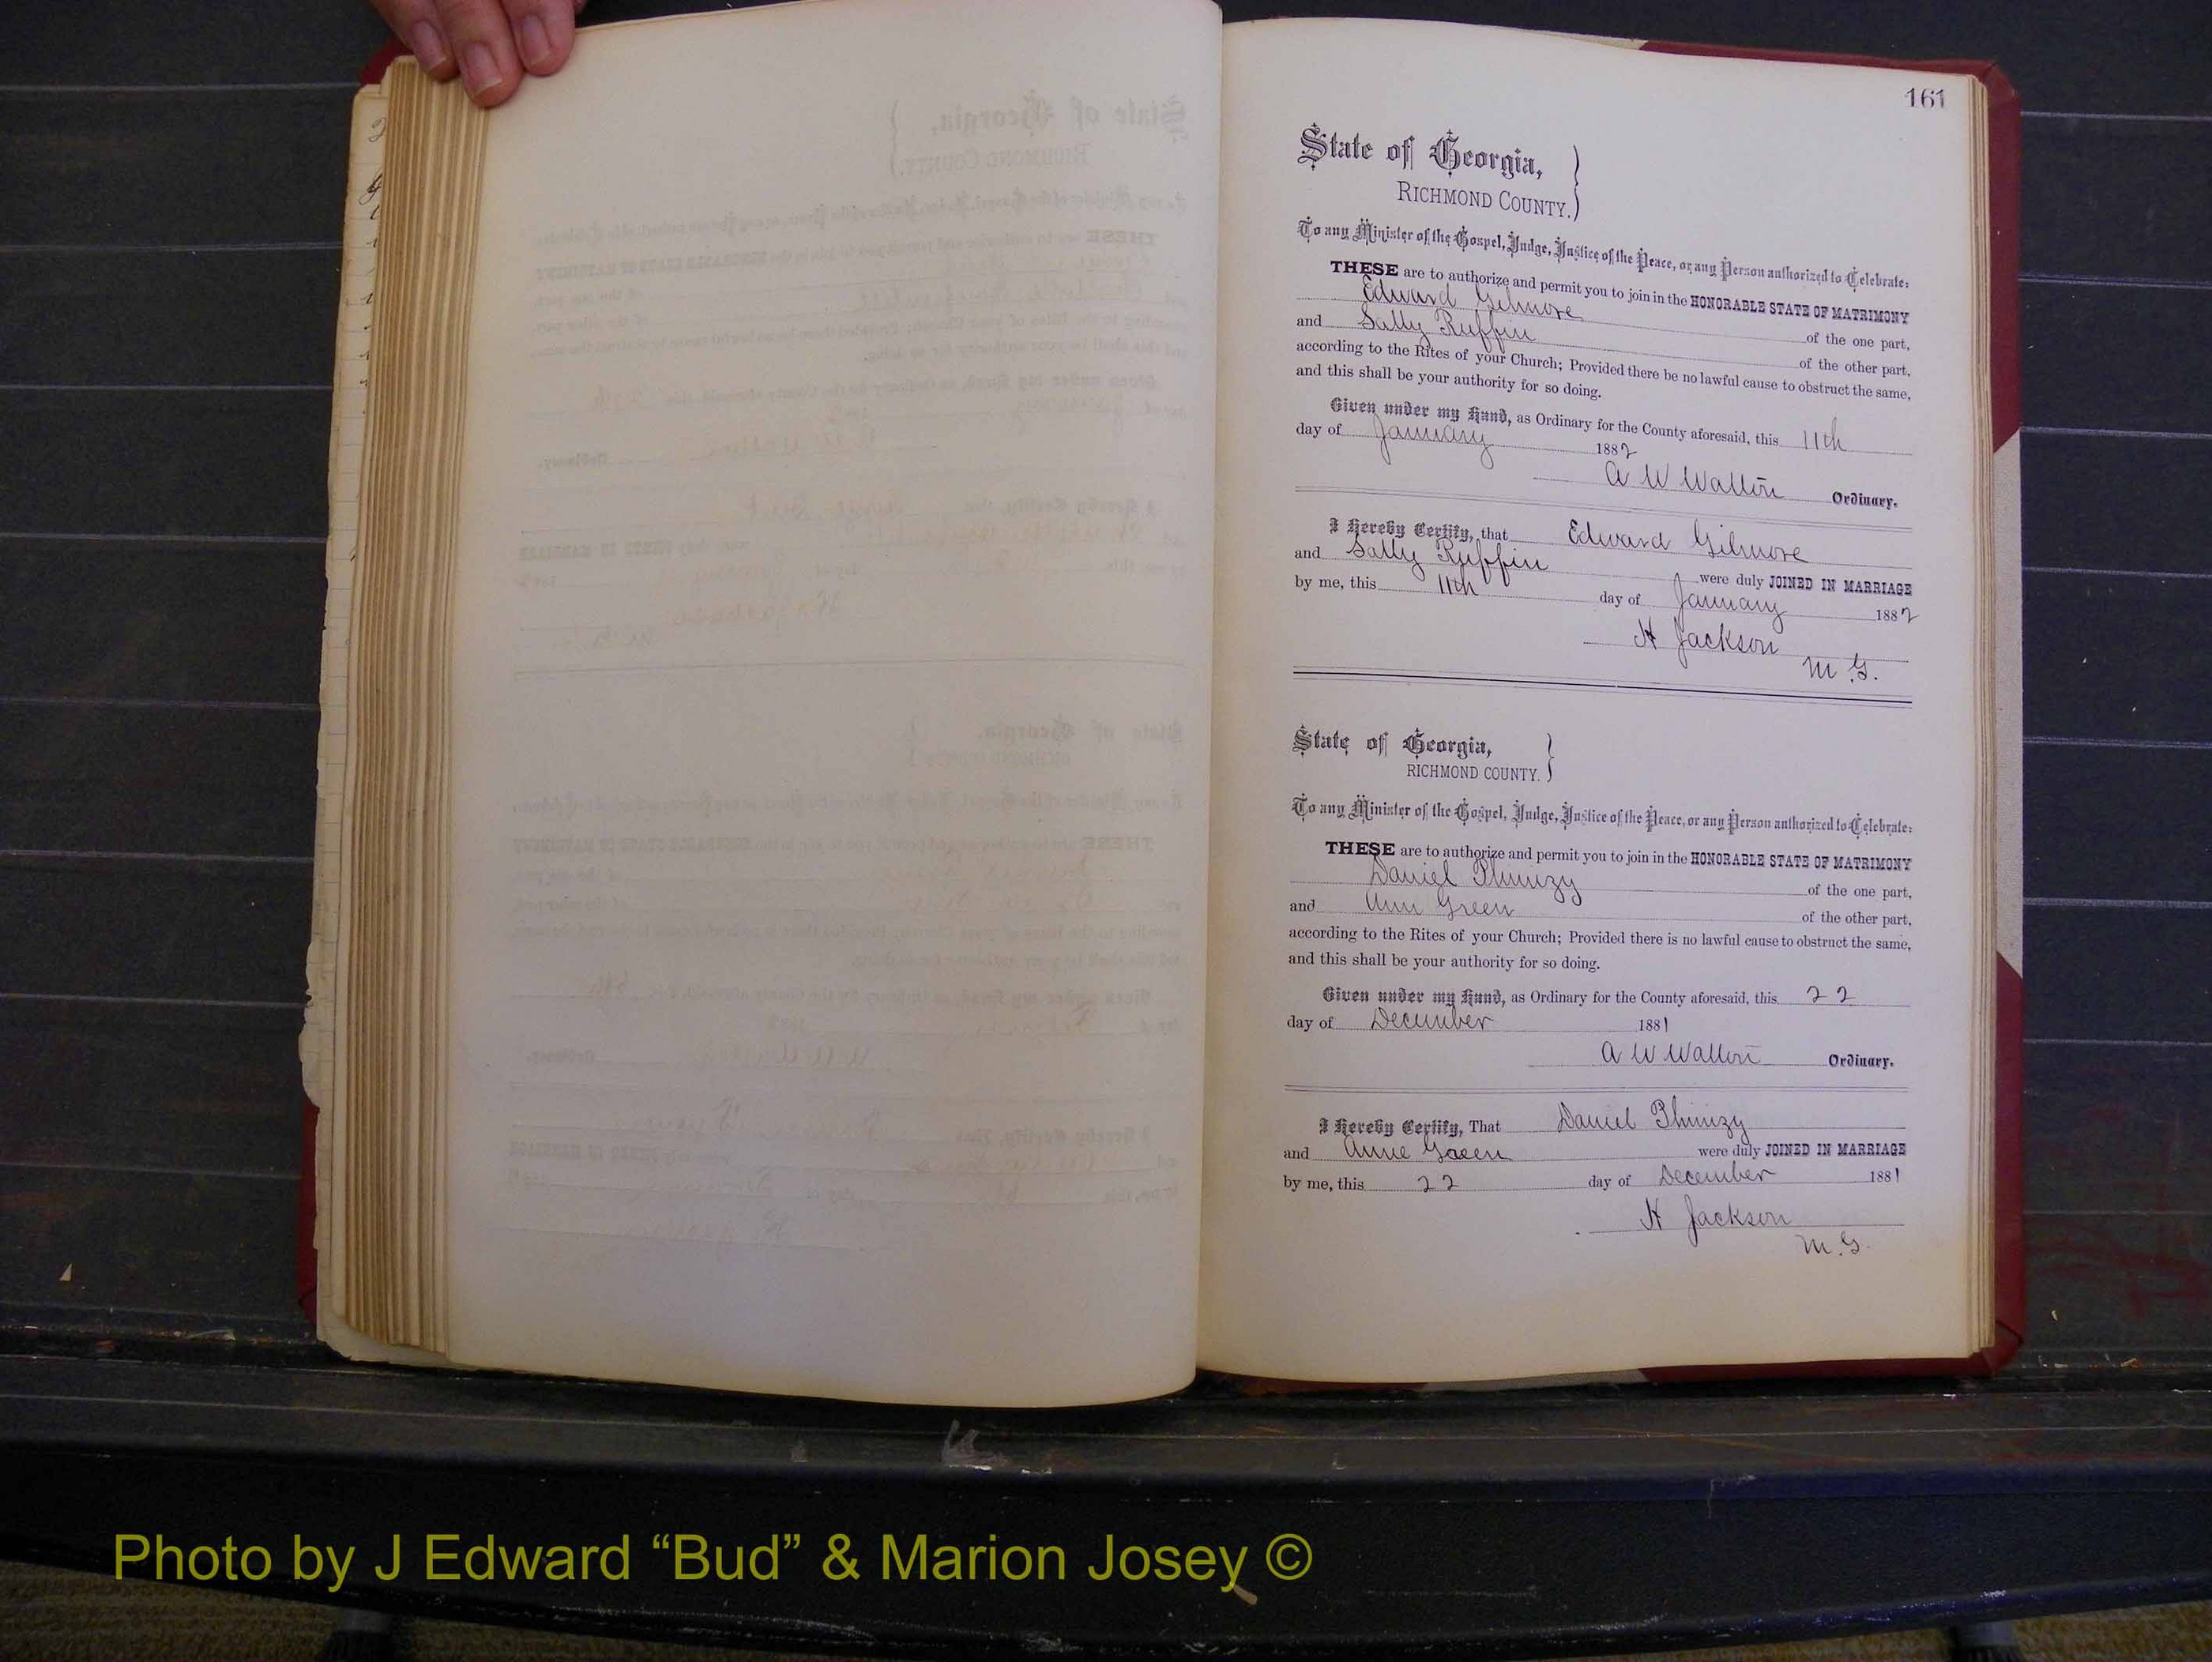 161
State of Georgia,
RICHMOND COUNTY.
To any Minister of the Gospel, Judge, Justice of the Peace, or any Person authorized to Celebrate:
THESE are to authorize and permit you to join in the HONORABLE STATE OF MATRIMONY
Edward Gilmore of the one part,
and Sally Ruffin of the other part,
according to the Rites of your Church; Provided there be no lawful cause to obstruct the same,
and this shall be your authority for so doing.
Given under my Hand, as Ordinary for the County aforesaid, this 11th
day of January 1882
A W Walton Ordinary.
I Hereby Certify, that Edward Gilmore
and Sally Ruffin were duly JOINED IN MARRIAGE
by me, this 11th day of January 1882
H Jackson
M. G.
State of Georgia,
RICHMOND COUNTY.
To any Minister of the Gospel, Judge, Justice of the Peace, or any Person authorized to Celebrate:
THESE are to authorize and permit you to join in the HONORABLE STATE OF MATRIMONY
Daniel Phinizy of the one part,
and Ann Green of the other part,
according to the Rites of your Church; Provided there is no lawful cause to obstruct the same,
and this shall be your authority for so doing.
Given under my Hand, as Ordinary for the County aforesaid, this 22
day of December 1881
A W Walton Ordinary.
I Hereby Certify, That Daniel Phinizy
and Anne Green were duly JOINED IN MARRIAGE
by me, this 22 day of December 1881
H Jackson
M. G.
Photo by J Edward “Bud” & Marion Josey ©